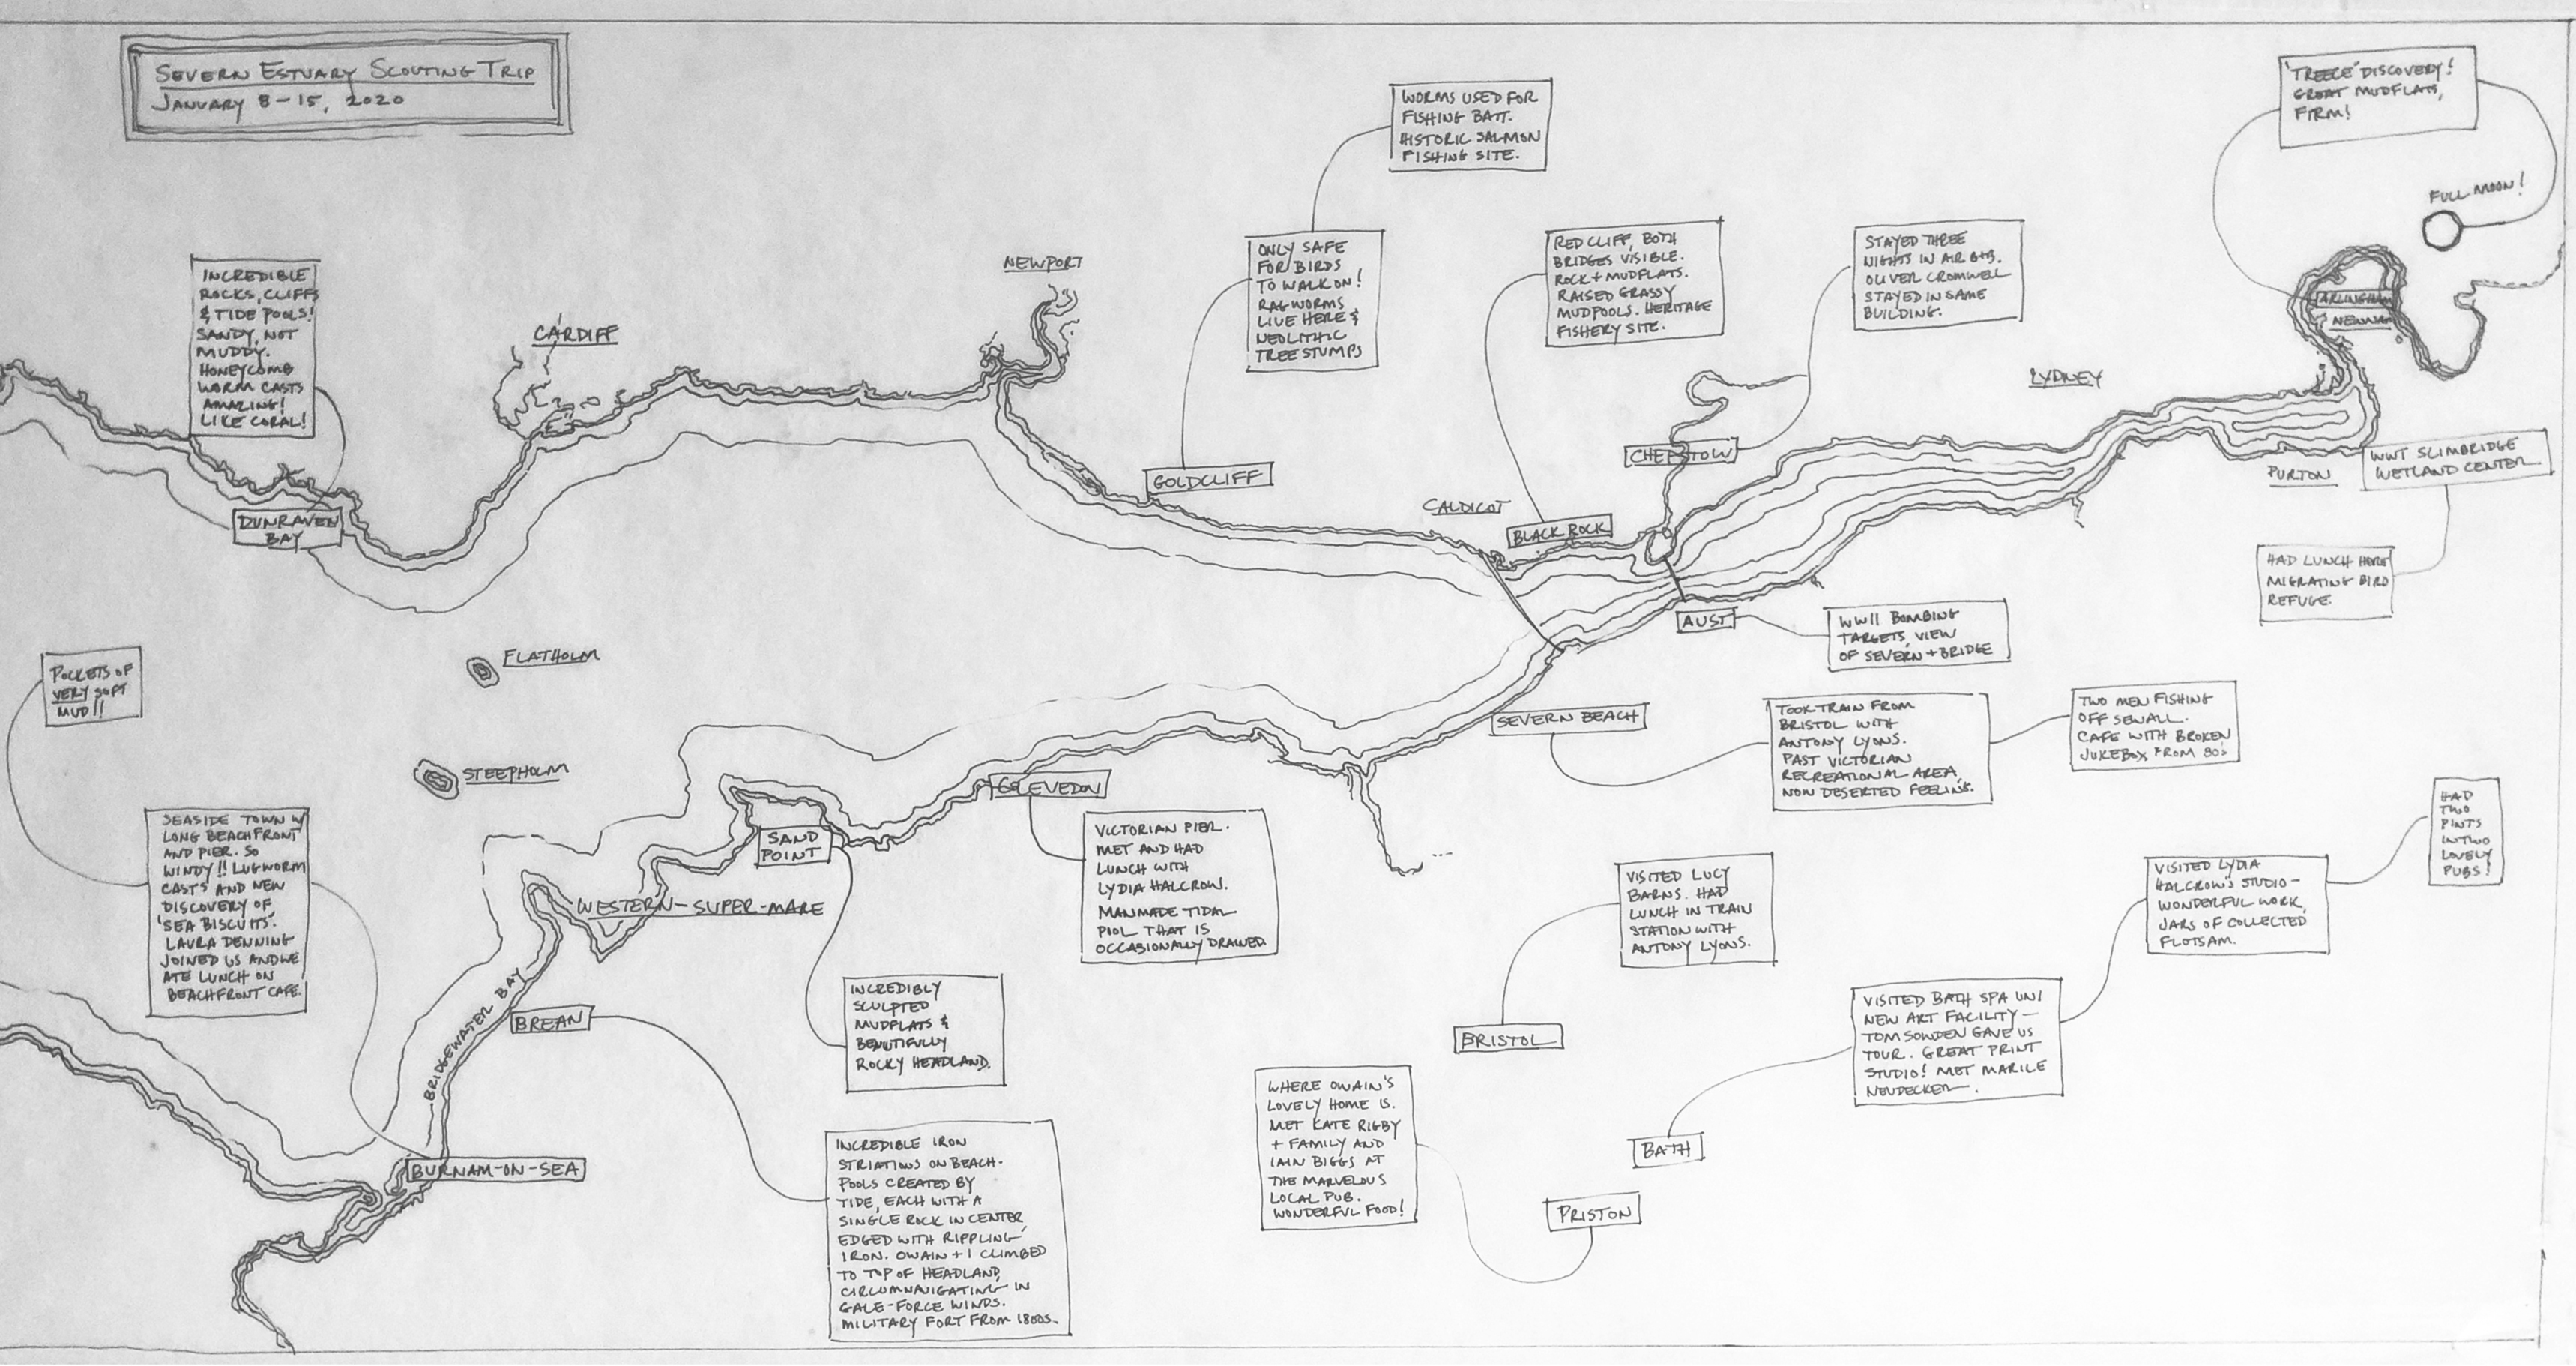 SEVERN ESTUARY SCOUTING TRIP
JANUARY 8-15, 2020
WORMS USED FOR
FISHING BAIT.
HISTORIC SALMON
FISHING SITE.
'TREECE' DISCOVERY!
GREAT MUDFLATS,
FIRM!
FULL MOON!
INCREDIBLE
ROCKS, CLIFFS
& TIDE POOLS!
SANDY, NOT
MUDDY.
HONEYCOMB
WORM CASTS
AMAZING!
LIKE CORAL!
CARDIFF
NEWPORT
ONLY SAFE
FOR BIRDS
TO WALK ON!
RAGWORMS
LIVE HERE &
NEOLITHIC
TREE STUMPS
RED CLIFF, BOTH
BRIDGES VISIBLE.
ROCK + MUDFLATS.
RAISED GRASSY
MUDPOOLS. HERITAGE
FISHERY SITE.
STAYED THREE
NIGHTS IN AIR B+B.
OLIVER CROMWELL
STAYED IN SAME
BUILDING.
ARLINGHAM
LYDNEY
CHEPSTOW
GOLDCLIFF
CALDICOT
BLACK ROCK
DUNRAVEN
BAY
PURTON
WWT SLIMBRIDGE
WETLAND CENTER
HAD LUNCH HERE
MIGRATING BIRD
REFUGE.
AUST
WWII BOMBING
TARGETS, VIEW
OF SEVERN + BRIDGE
FLATHOLM
STEEPHOLM
POCKETS OF
VERY SOFT
MUD!!
SEVERN BEACH
TOOK TRAIN FROM
BRISTOL WITH
ANTONY LYONS.
PAST VICTORIAN
RECREATIONAL AREA,
NOW DESERTED FEELING.
TWO MEN FISHING
OFF SEWALL.
CAFE WITH BROKEN
JUKEBOX FROM 80'S
CLEVEDON
VICTORIAN PIER.
MET AND HAD
LUNCH WITH
LYDIA HALCROW.
MANMADE TIDAL
POOL THAT IS
OCCASIONALLY DRAINED.
SAND
POINT
WESTERN-SUPER-MARE
SEASIDE TOWN W/
LONG BEACHFRONT
AND PIER. SO
WINDY!! LUGWORM
CASTS AND NEW
DISCOVERY OF
'SEA BISCUITS'.
LAURA DENNING
JOINED US AND WE
ATE LUNCH ON
BEACHFRONT CAFE.
BRIDGEWATER BAY
BREAN
INCREDIBLY
SCULPTED
MUDFLATS &
BEAUTIFULLY
ROCKY HEADLAND.
BURNAM-ON-SEA
INCREDIBLE IRON
STRIATIONS ON BEACH.
POOLS CREATED BY
TIDE, EACH WITH A
SINGLE ROCK IN CENTER,
EDGED WITH RIPPLING
IRON. OWAIN + I CLIMBED
TO TOP OF HEADLAND,
CIRCUMNAVIGATING IN
GALE-FORCE WINDS.
MILITARY FORT FROM 1800S.
VISITED LUCY
BARNS. HAD
LUNCH IN TRAIN
STATION WITH
ANTONY LYONS.
BRISTOL
WHERE OWAIN'S
LOVELY HOME IS.
MET KATE RIGBY
+ FAMILY AND
IAIN BIGGS AT
THE MARVELOUS
LOCAL PUB.
WONDERFUL FOOD!
PRISTON
BATH
VISITED BATH SPA UNI
NEW ART FACILITY -
TOM SOWDEN GAVE US
TOUR. GREAT PRINT
STUDIO! MET MARILE
NEUDECKER.
VISITED LYDIA
HALCROW'S STUDIO -
WONDERFUL WORK,
JARS OF COLLECTED
FLOTSAM.
HAD
TWO
PINTS
IN TWO
LOVELY
PUBS!